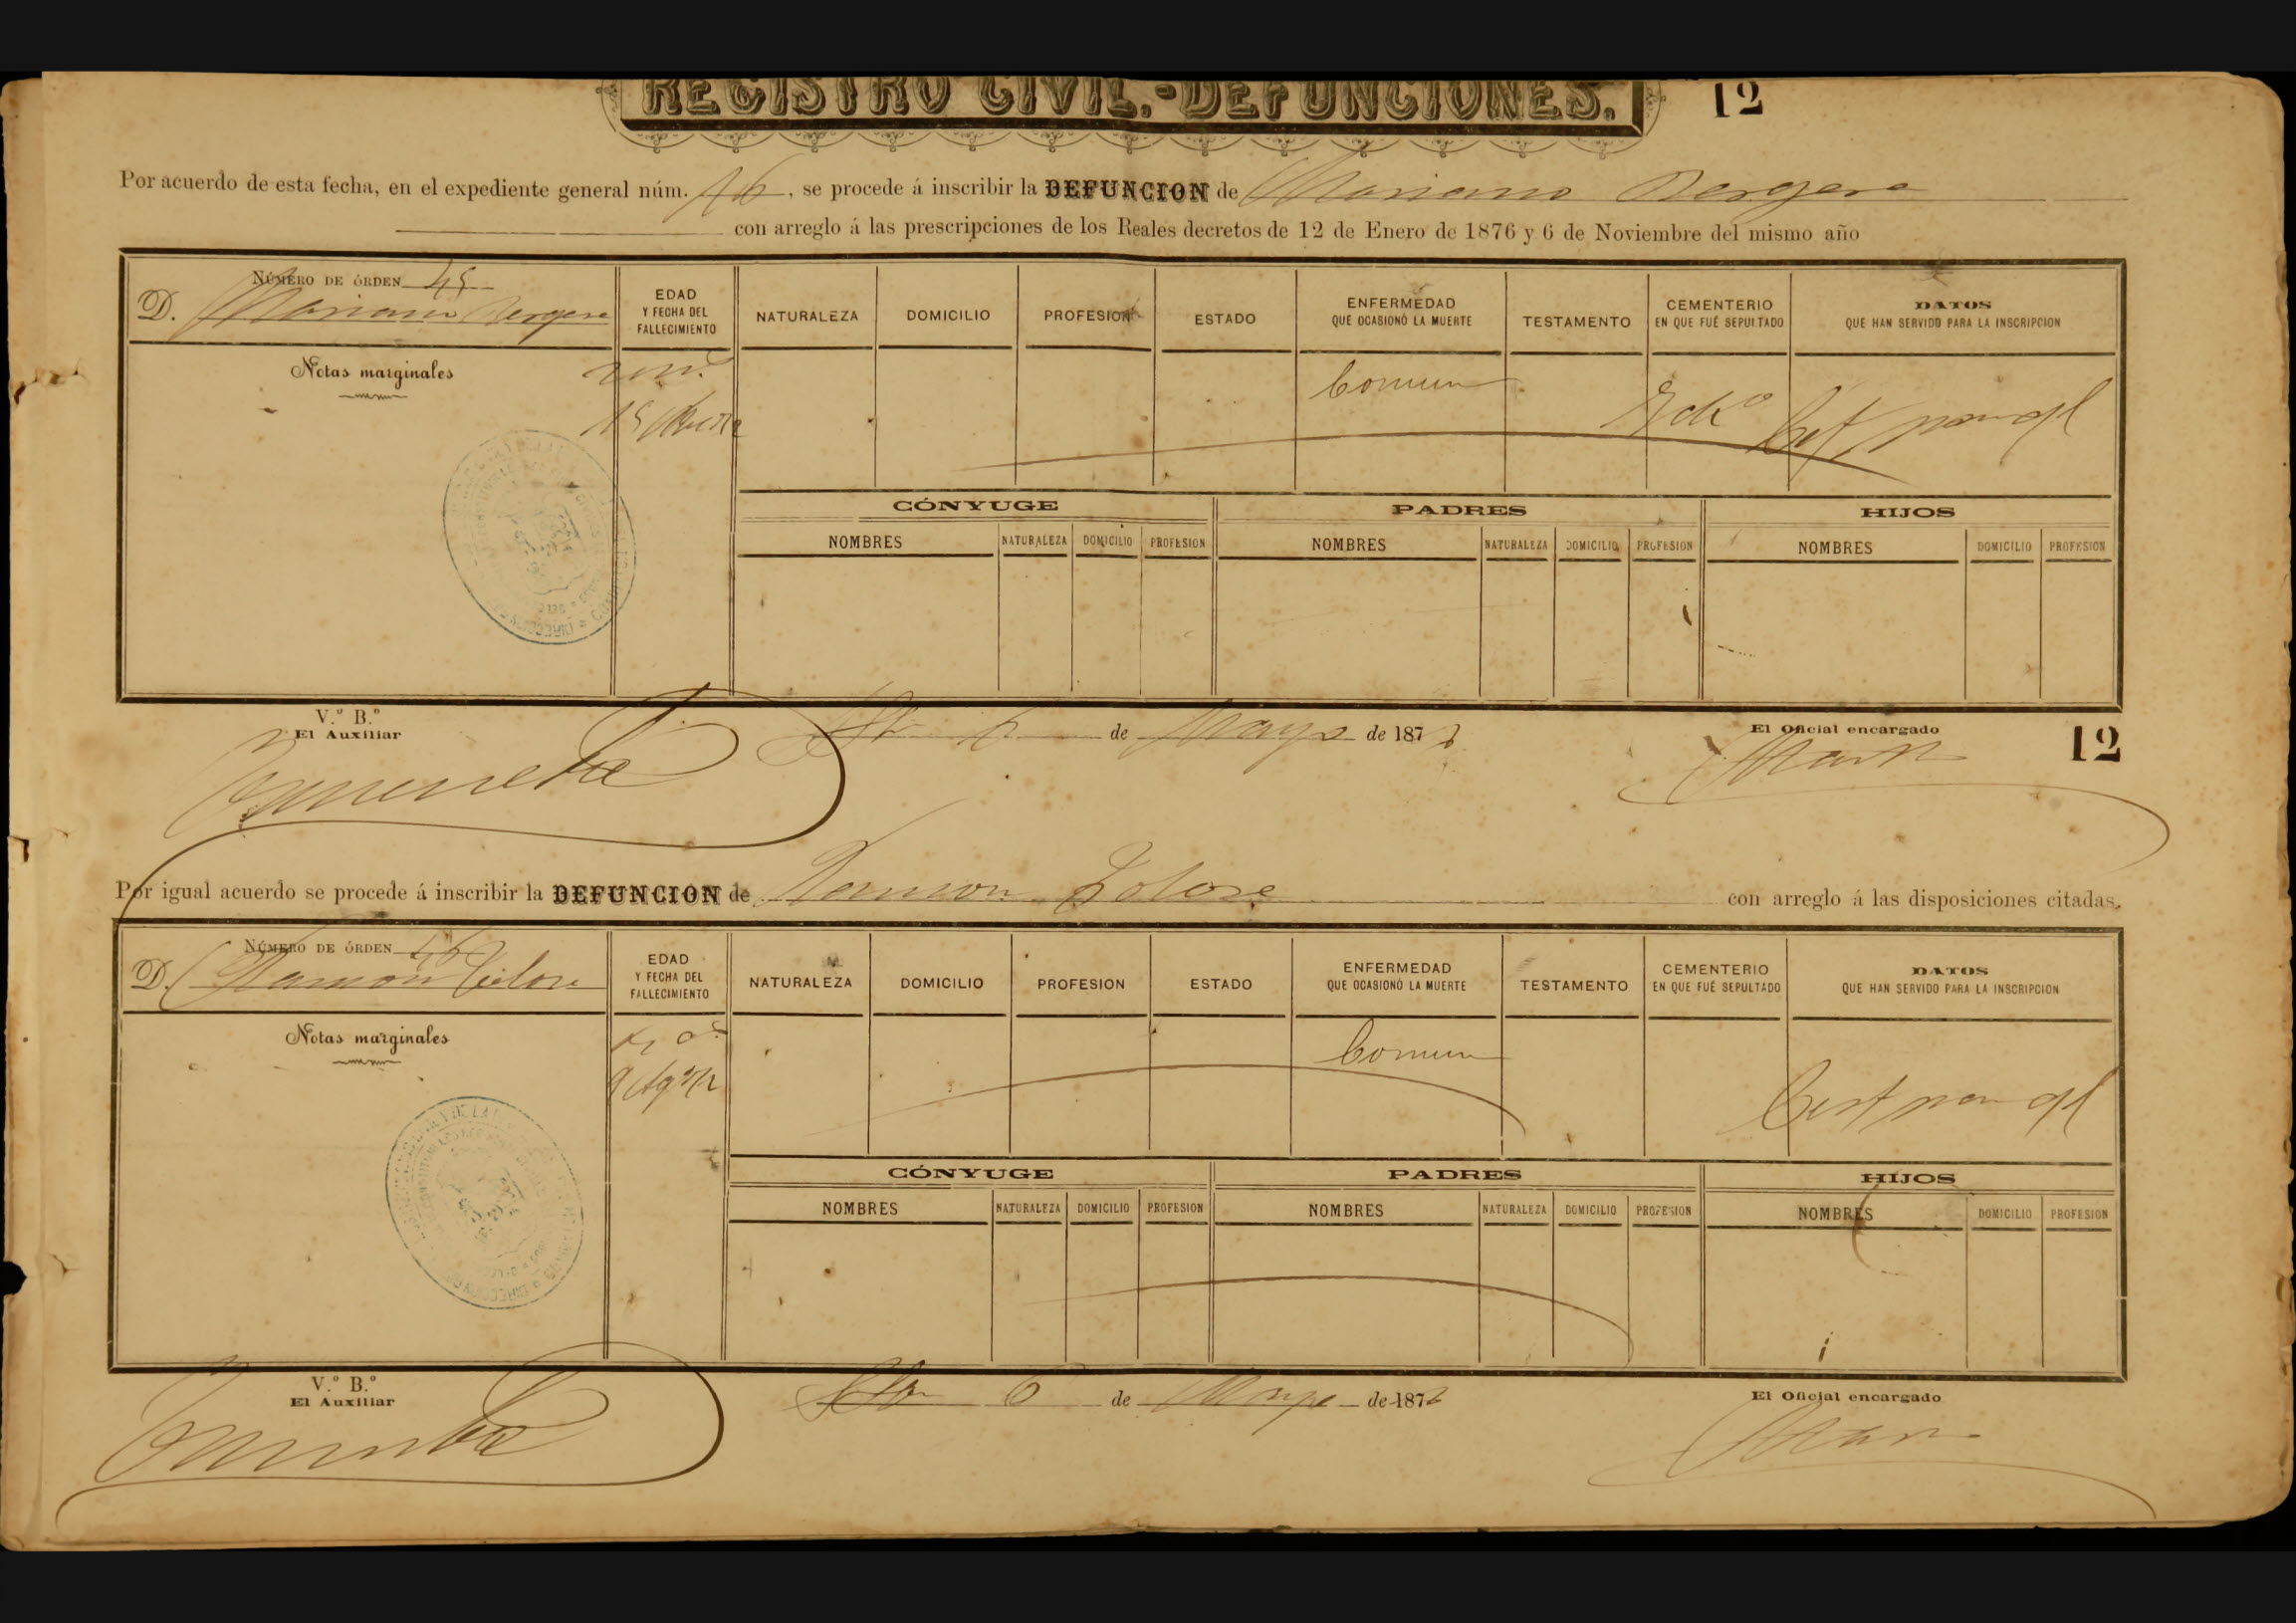 REGISTRO CIVIL.-DEFUNCIONES. 12
Por acuerdo de esta fecha, en el expediente general núm. 16, se procede á inscribir la DEFUNCION de Mariano Vergara
con arreglo á las prescripciones de los Reales decretos de 12 de Enero de 1876 y 6 de Noviembre del mismo año
NÚMERO DE ÓRDEN 45
D. Mariano Vergara
EDAD Y FECHA DEL FALLECIMIENTO
NATURALEZA
DOMICILIO
PROFESION
ESTADO
ENFERMEDAD QUE OCASIONÓ LA MUERTE
TESTAMENTO
CEMENTERIO EN QUE FUÉ SEPULTADO
DATOS QUE HAN SERVIDO PARA LA INSCRIPCION
Notas marginales
Comun
CÓNYUGE
PADRES
HIJOS
NOMBRES NATURALEZA DOMICILIO PROFESION NOMBRES NATURALEZA DOMICILIO PROFESION NOMBRES DOMICILIO PROFESION
V.º B.º
El Auxiliar
de Mayo de 187
El Oficial encargado
12
Por igual acuerdo se procede á inscribir la DEFUNCION de Ramon con arreglo á las disposiciones citadas.
NÚMERO DE ÓRDEN 46
D. Ramon
EDAD Y FECHA DEL FALLECIMIENTO
NATURALEZA
DOMICILIO
PROFESION
ESTADO
ENFERMEDAD QUE OCASIONÓ LA MUERTE
TESTAMENTO
CEMENTERIO EN QUE FUÉ SEPULTADO
DATOS QUE HAN SERVIDO PARA LA INSCRIPCION
Notas marginales
Comun
CÓNYUGE
PADRES
HIJOS
NOMBRES NATURALEZA DOMICILIO PROFESION NOMBRES NATURALEZA DOMICILIO PROFESION NOMBRES DOMICILIO PROFESION
V.º B.º
El Auxiliar
6 de Mayo de 187
El Oficial encargado